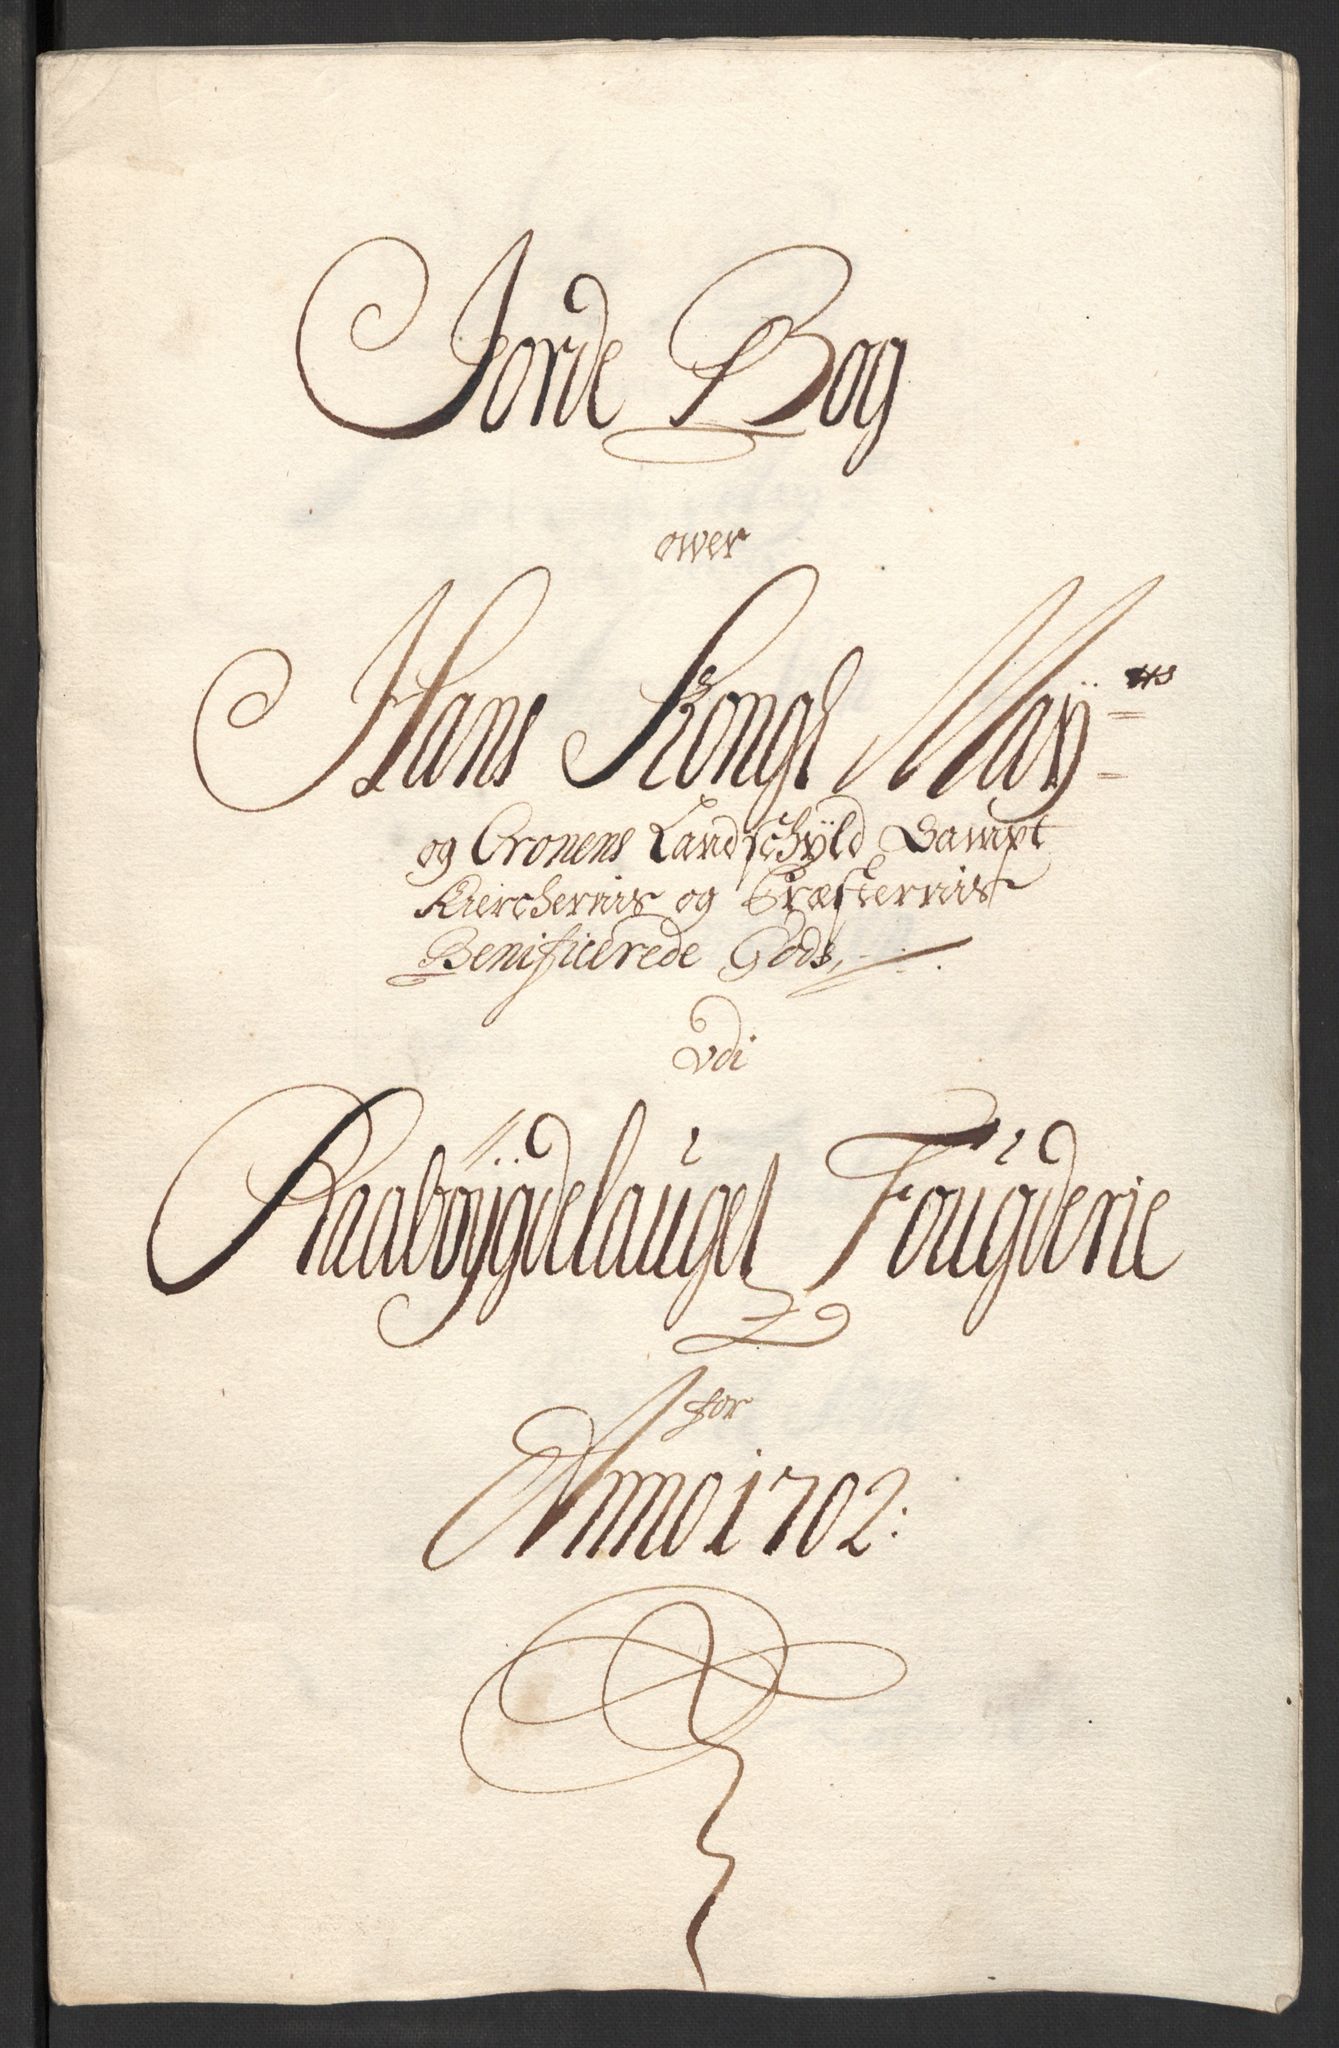 Jorde Bog
ower
Hans Kongl Maÿ=ts=
og Cronens Landschÿld Sampt
Kierchernis og Præsternis
Benificerede Gods,
Vdi
Raaboÿgdelauget Fougderie
for
Anno 1702: